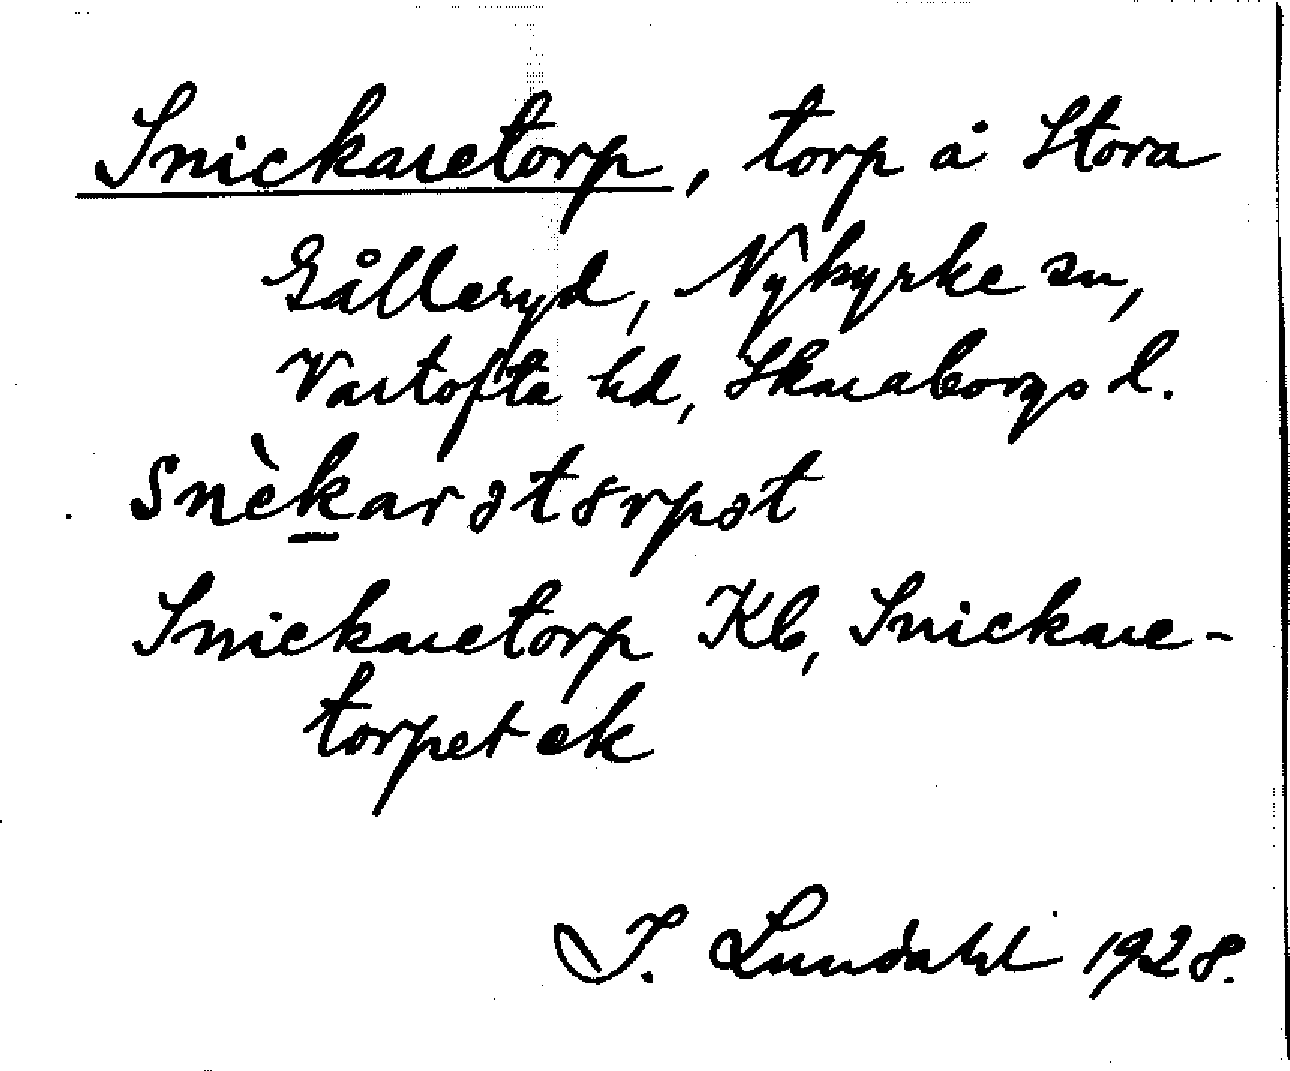 Snickaretorp, torp å Stora
Gålleryd, Nykyrke sn,
Vartofta hd, Skaraborgs l.
Snèkarətɵrpət
Snickaretorp Kb, Snickare-
torpet ek
I. Lundahl 1928.